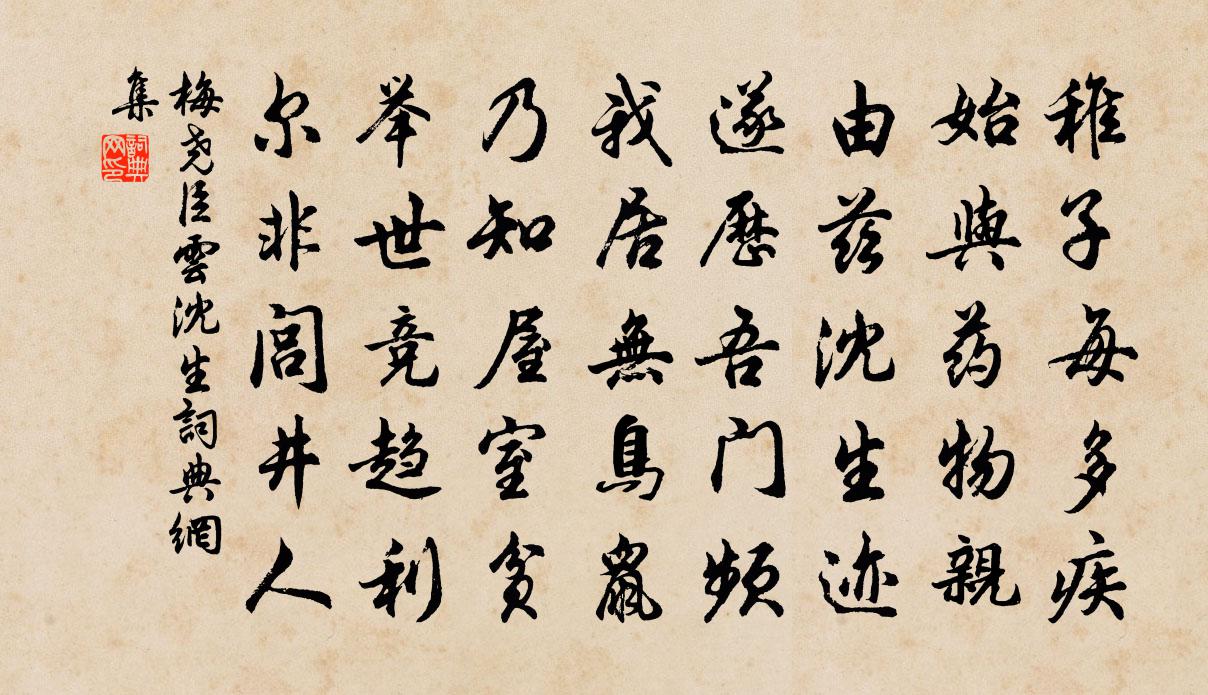 稚子每多疾
始與药物親
由兹沈生迹
遂歷吾门頻
我居無鳥鼠
乃知屋室貧
举世竞趋利
尔非閭井人
梅尧臣雲沈生詞典網
集
詞典网印